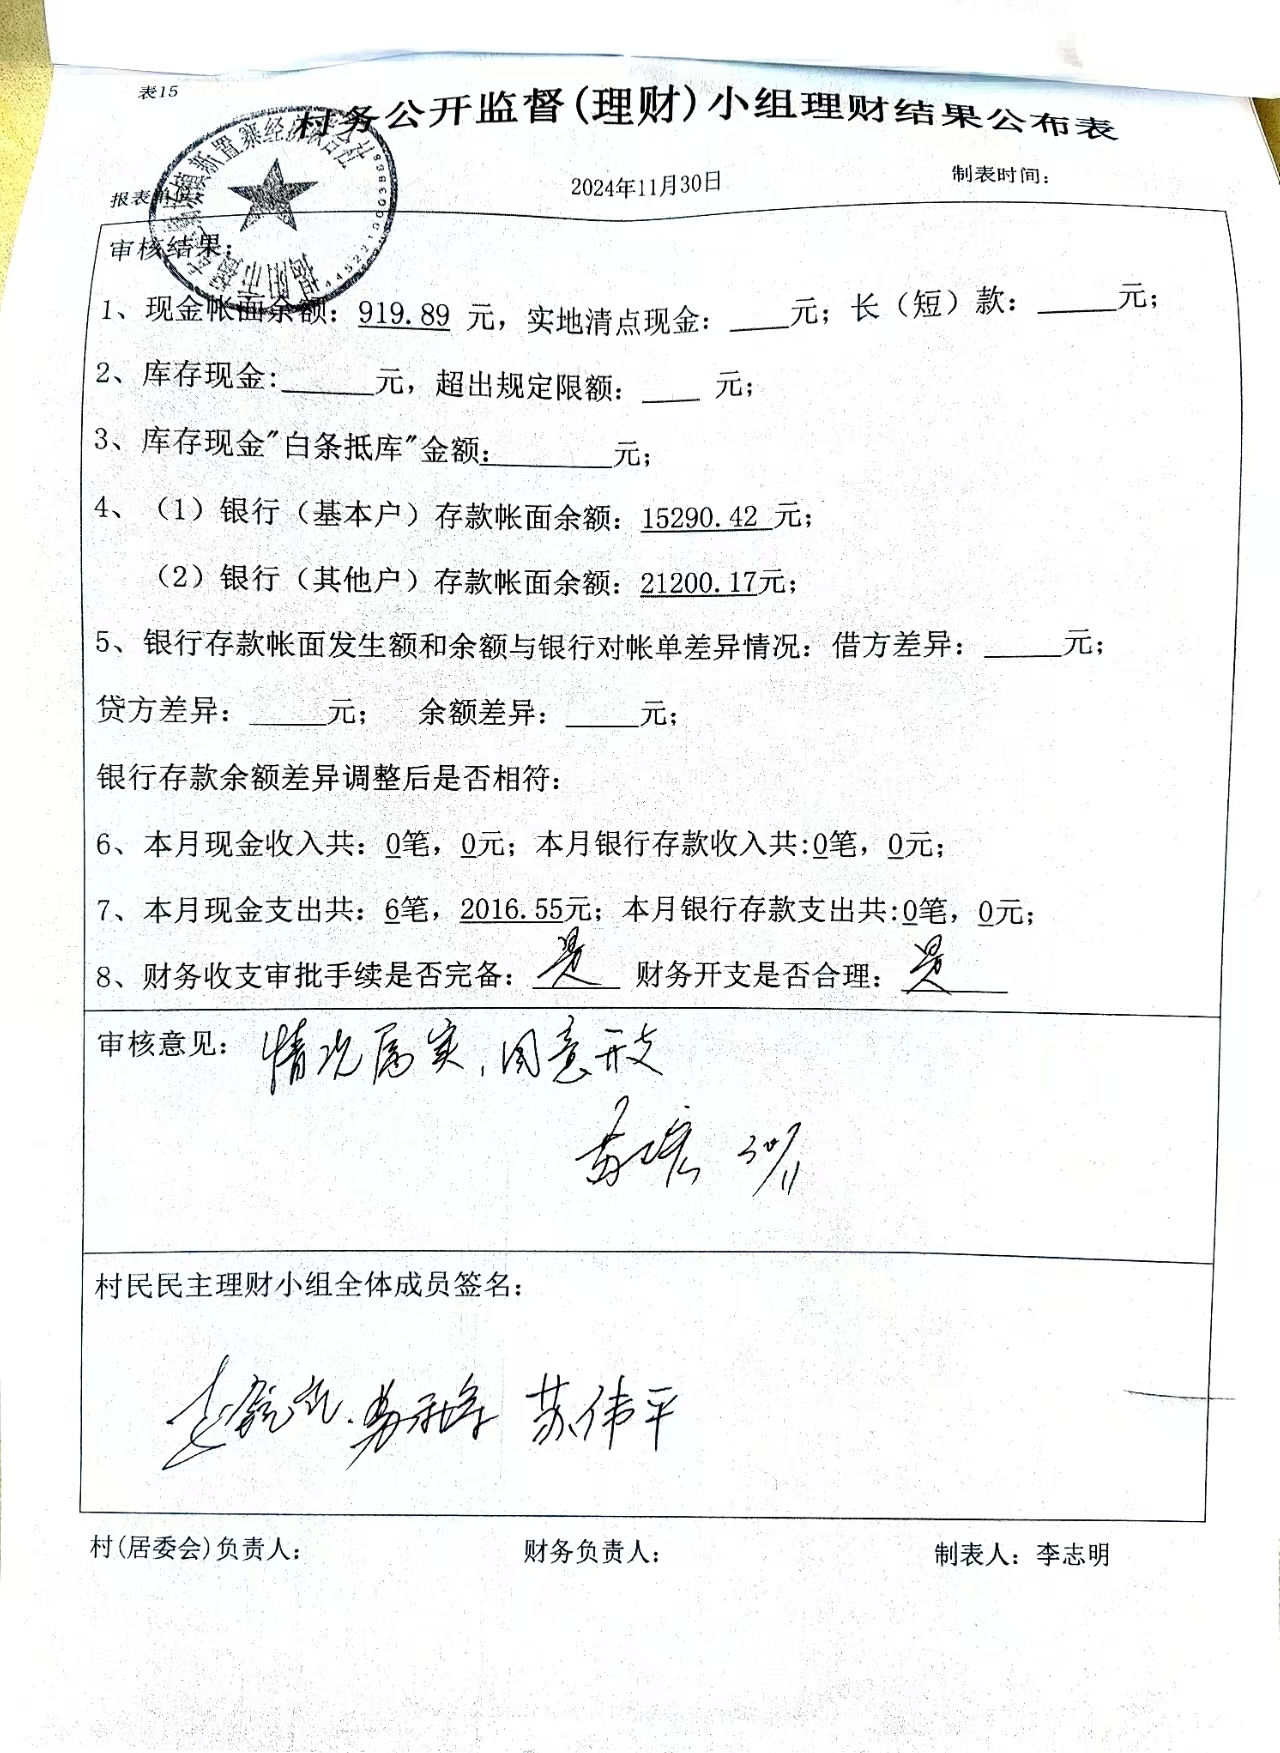 表15
村务公开监督(理财)小组理财结果公布表
报表单位:
2024年11月30日
制表时间:
审核结果:
1、现金帐面余额: 919.89 元, 实地清点现金: ____元; 长（短）款: _____元;
2、库存现金:______元, 超出规定限额: ____ 元;
3、库存现金"白条抵库"金额:________元;
4、（1）银行（基本户）存款帐面余额: 15290.42 元;
（2）银行（其他户）存款帐面余额: 21200.17元;
5、银行存款帐面发生额和余额与银行对帐单差异情况: 借方差异: _____元;
贷方差异: _____元; 余额差异: _____元;
银行存款余额差异调整后是否相符:
6、本月现金收入共: 0笔, 0元; 本月银行存款收入共:0笔, 0元;
7、本月现金支出共: 6笔, 2016.55元; 本月银行存款支出共:0笔, 0元;
8、财务收支审批手续是否完备: 是 财务开支是否合理: 是
审核意见: 情况属实, 同意开支
30/11
村民民主理财小组全体成员签名:
苏伟平
村(居委会)负责人: 财务负责人: 制表人: 李志明